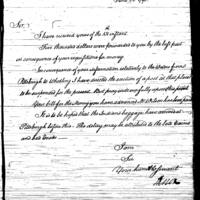 Sir,
I have received yours of the 18 instant.
Five thousand dollars forwarded to you by the last post
in consequence of your requisitions for money
In consequence of your information relatively to the Waters from
Pittsburgh to Wheeling I have directed the erection of a post at that place
to be suspended for the present. But pray endeavor fully upon the
Your bill for the Money you have advanced Mr Wilson has been paid
It is to be hoped that the Indians baggage have arrived at
Pittsburgh before this. The delay may be attributed to the late Rains
and bad Roads
I am
Sir
Your humble servant